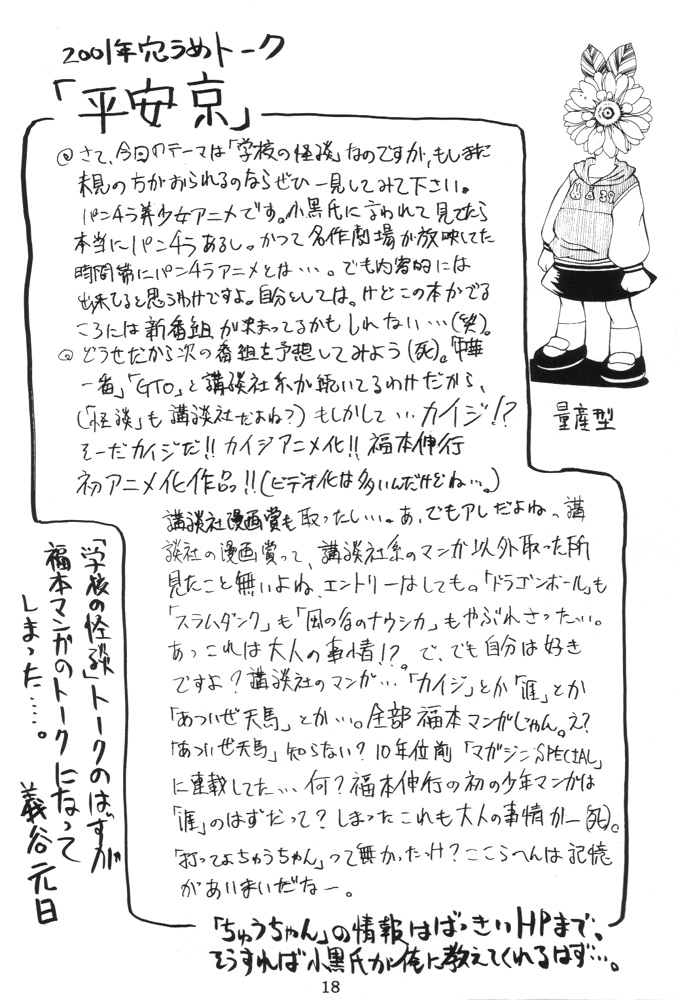 2001年穴うめトーク
「平安京」
◎さて、今回のテーマは「学校の怪談」なのですが、もしまだ
未見の方がおられるのならぜひ一見してみて下さい。
パンチラ美少女アニメです。小黒氏に言われて見てたら
本当にパンチラあるし。かつて名作劇場が放映してた
時間帯にパンチラアニメとは…。でも内容的には
出来てると思うわけですよ。自分としては。けどこの本がでる
ころには新番組が決まってるかもしれない…(笑)。
◎どうせだから次の番組を予想してみよう(死)。「中華
一番」「GTO」と講談社系が続いてるわけだから、
(「怪談」も講談社だよね?)もしかして…カイジ!?
そーだカイジだ!!カイジアニメ化!!福本伸行
初アニメ化作品っ!!(ビデオ化は多いんだけどね…。)
講談社漫画賞も取ったしぃ…。あ、でもアレだよね、講
談社の漫画賞って、講談社系のマンガ以外取った所
見たこと無いよね、エントリーはしても。「ドラゴンボール」も
「スラムダンク」も「風の谷のナウシカ」もやぶれさった…。
あっこれは大人の事情!?。で、でも自分は好き
ですよ?講談社のマンガ…「カイジ」とか「涯」とか
「あついぜ天馬」とか…。全部福本マンガじゃん。え?
「あついぜ天馬」知らない?10年位前「マガジンSPECIAL」
に連載してた…何?福本伸行の初の少年マンガは
「涯」のはずだって?しまったこれも大人の事情かー(死)。
「打ってよちゅうちゃん」って無かったっけ?ここらへんは記憶
があいまいだなー。
「ちゅうちゃん」の情報はばっきぃHPまで。
そうすれば小黒氏が俺に教えてくれるはず…。
「学校の怪談」トークのはずが
福本マンガのトークになって
しまった…。
義谷元日
量産型
18